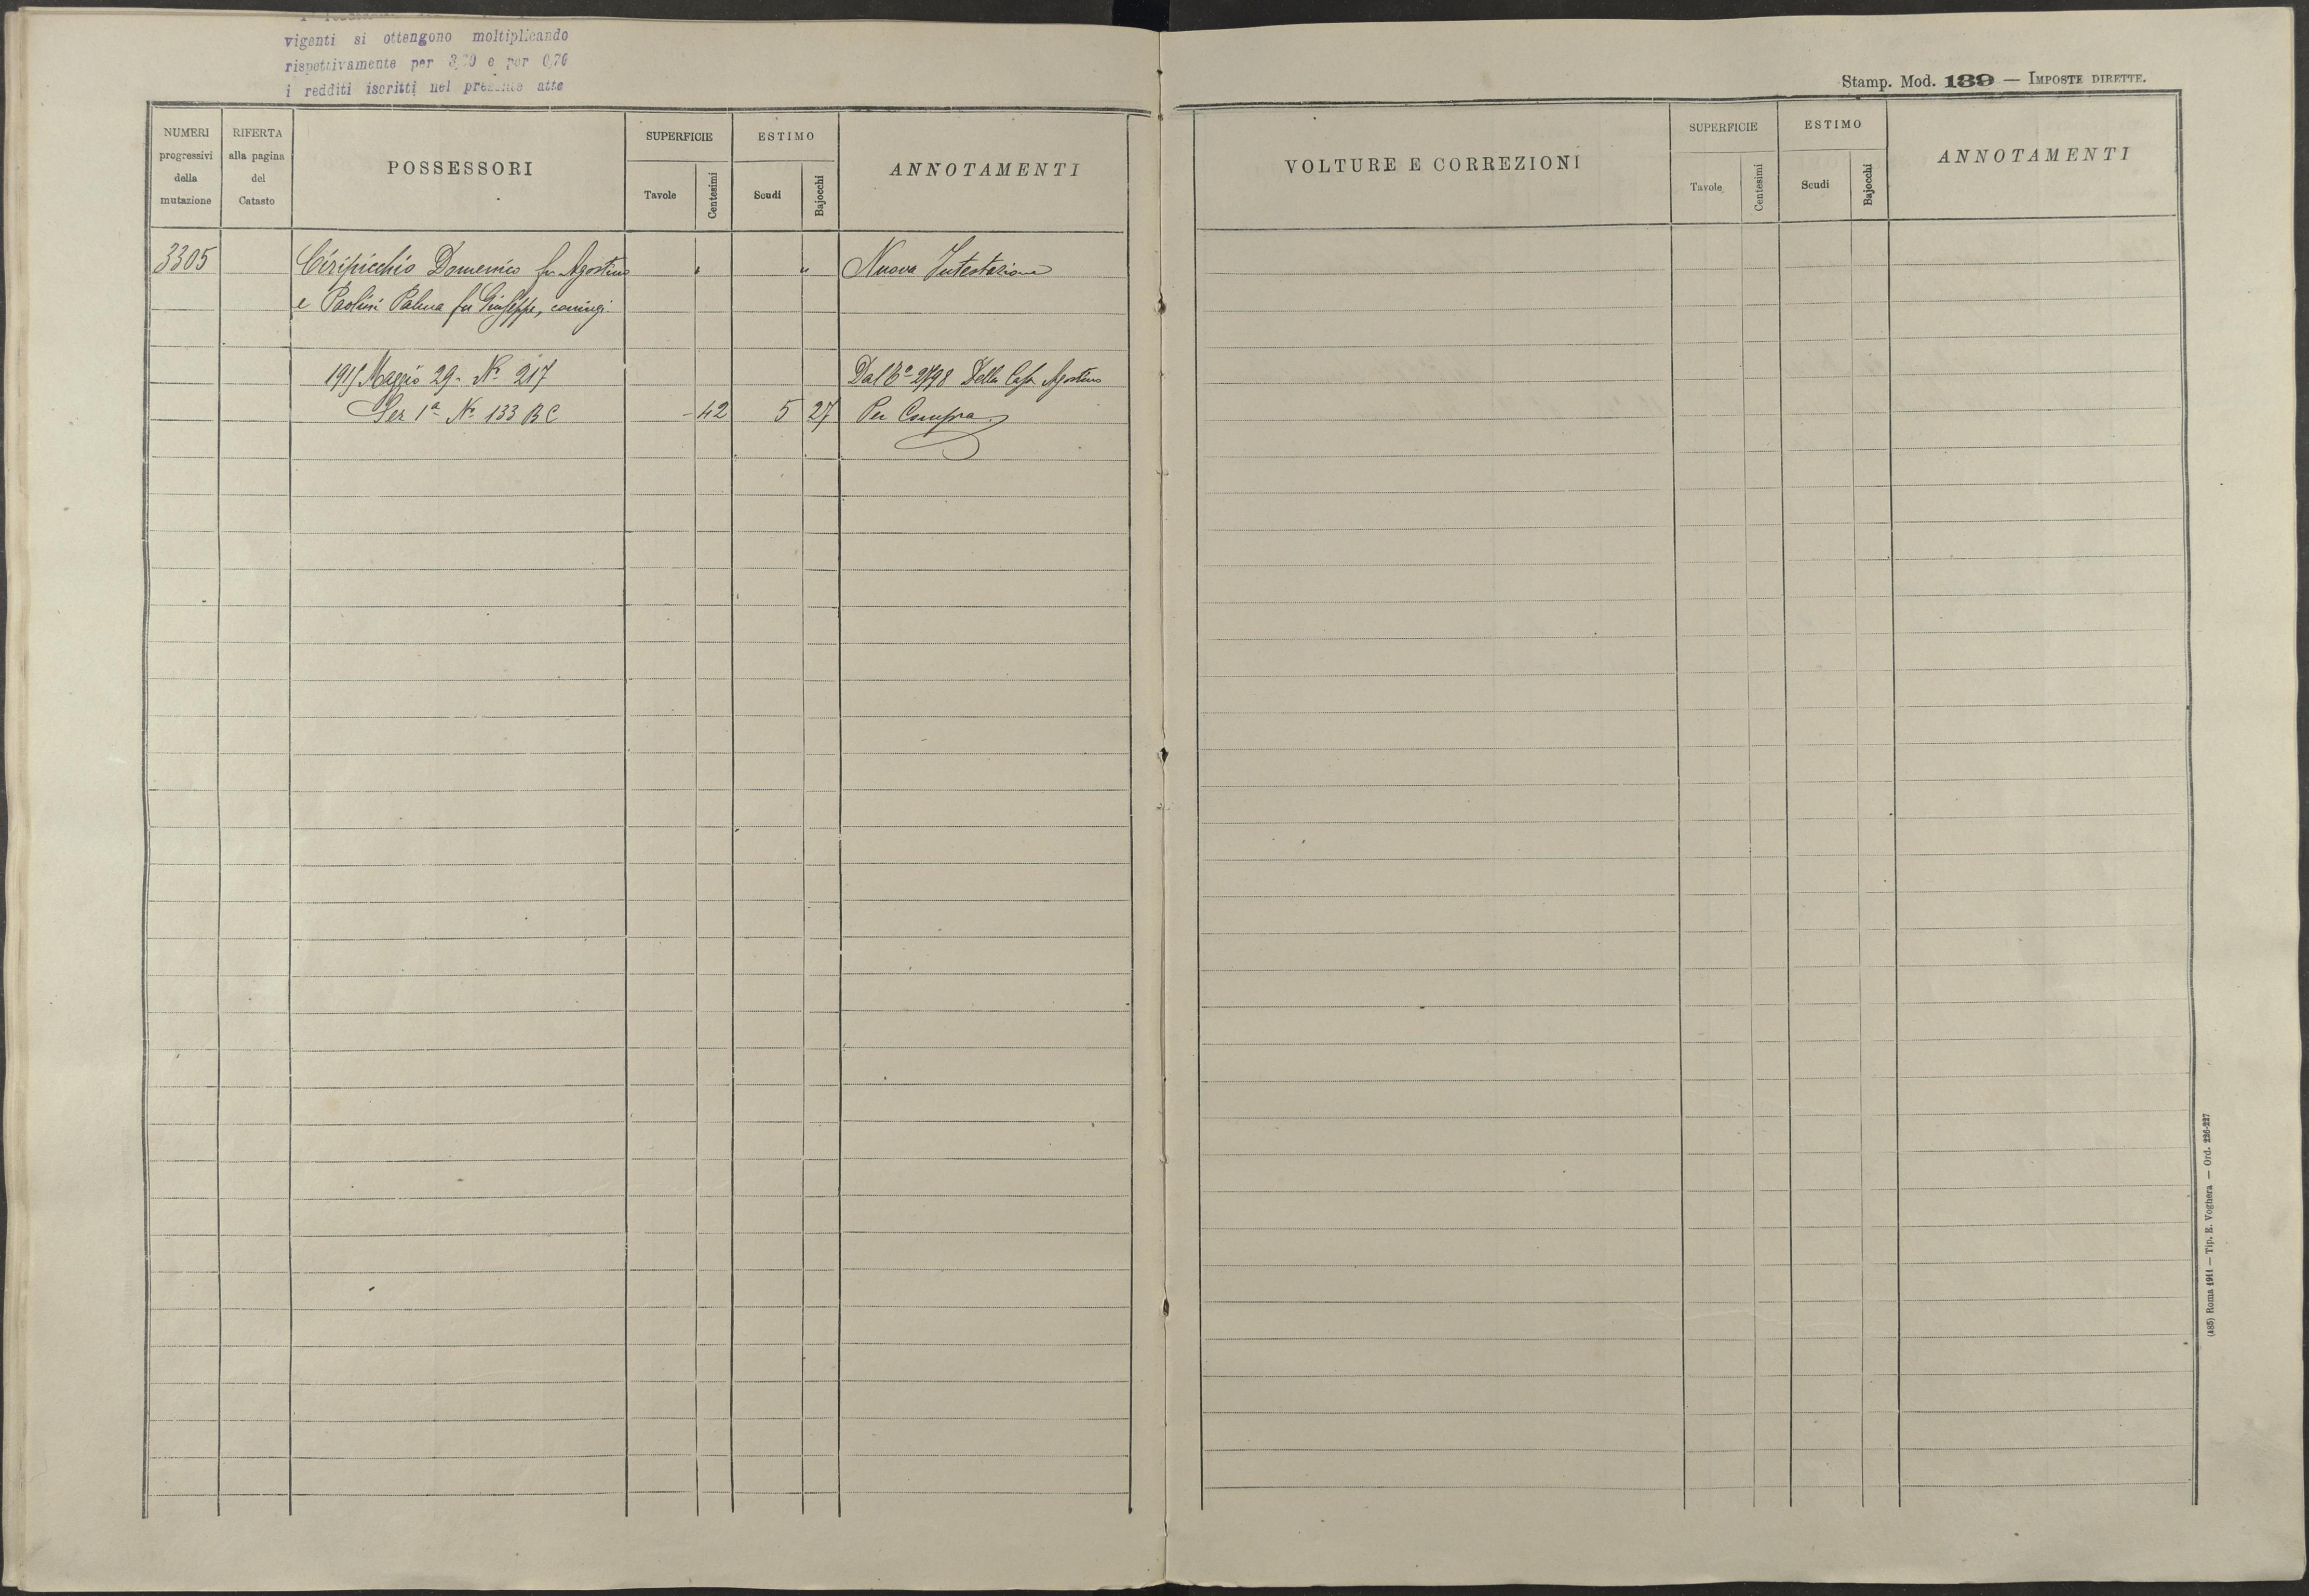 vigenti si ottengono moltiplicando
rispettivamente per 3,70 e per 0,76
i redditi iscritti nel presente atto
NUMERI
progressivi
della
mutazione
RIFERTA
alla pagina
del
Catasto
POSSESSORI
SUPERFICIE
Tavole
Centesimi
ESTIMO
Scudi
Bajocchi
ANNOTAMENTI
3305 Ciripicchio Domenico fu Agostino " " Nuova Intestazione
e Paolini Palma fu Giuseppe, coniugi
1915 Maggio 29 - Nº 217 Dal 2798 Della Casa Agostino
Sez 1ª Nº 133 BC - 42 5 27 Per Compra
Stamp. Mod. 139 — IMPOSTE DIRETTE.
VOLTURE E CORREZIONI
SUPERFICIE
Tavole
Centesimi
ESTIMO
Scudi
Bajocchi
ANNOTAMENTI
(485) Roma 1911 — Tip. E. Voghera — Ord. 226-227